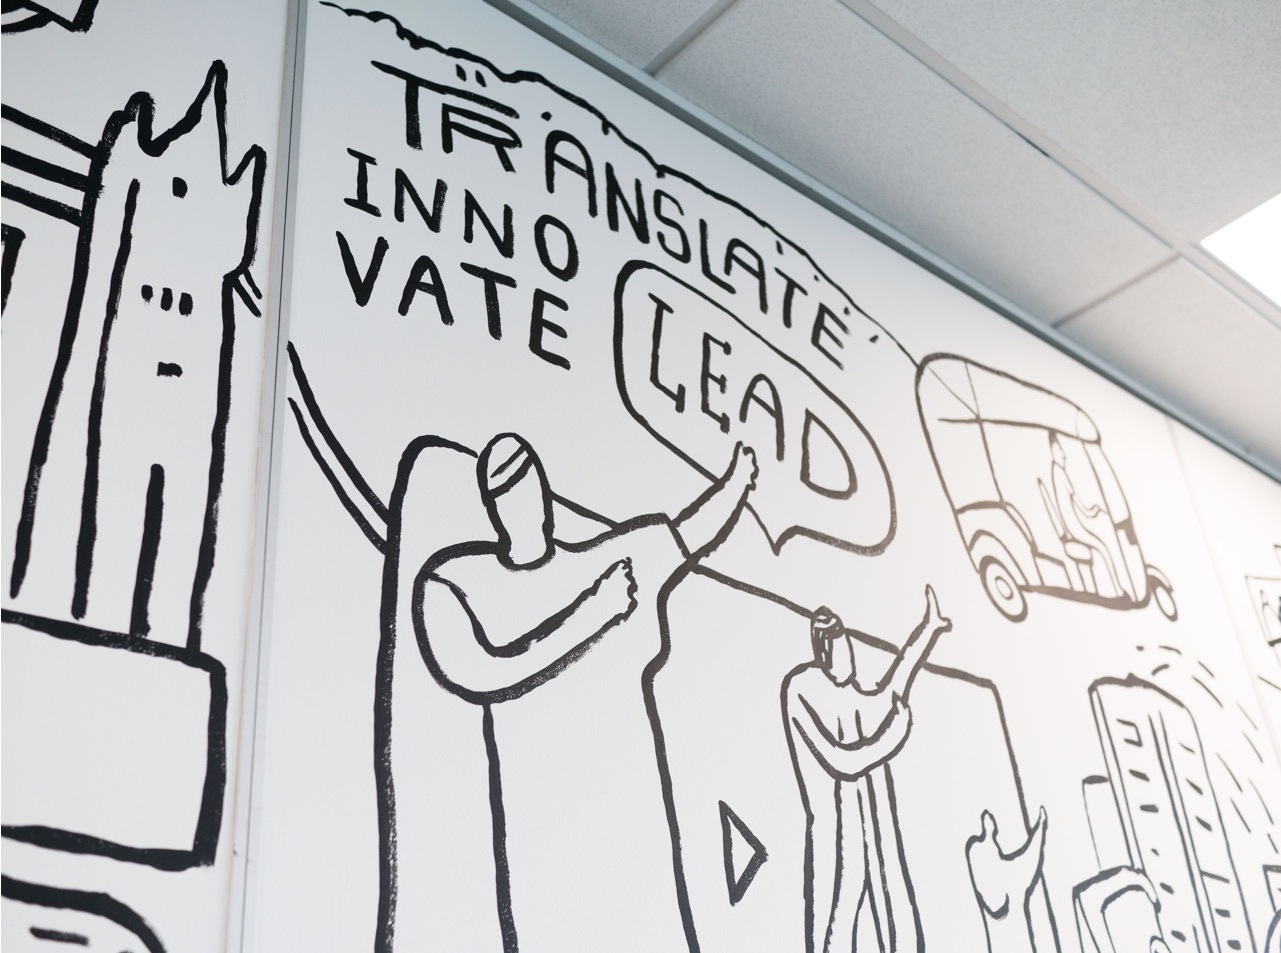 TRANSLATE
INNO
VATE
LEAD